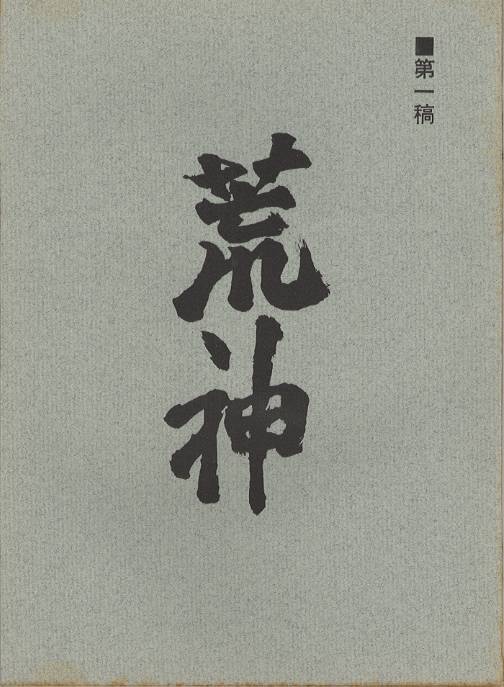 ■第一稿
荒神